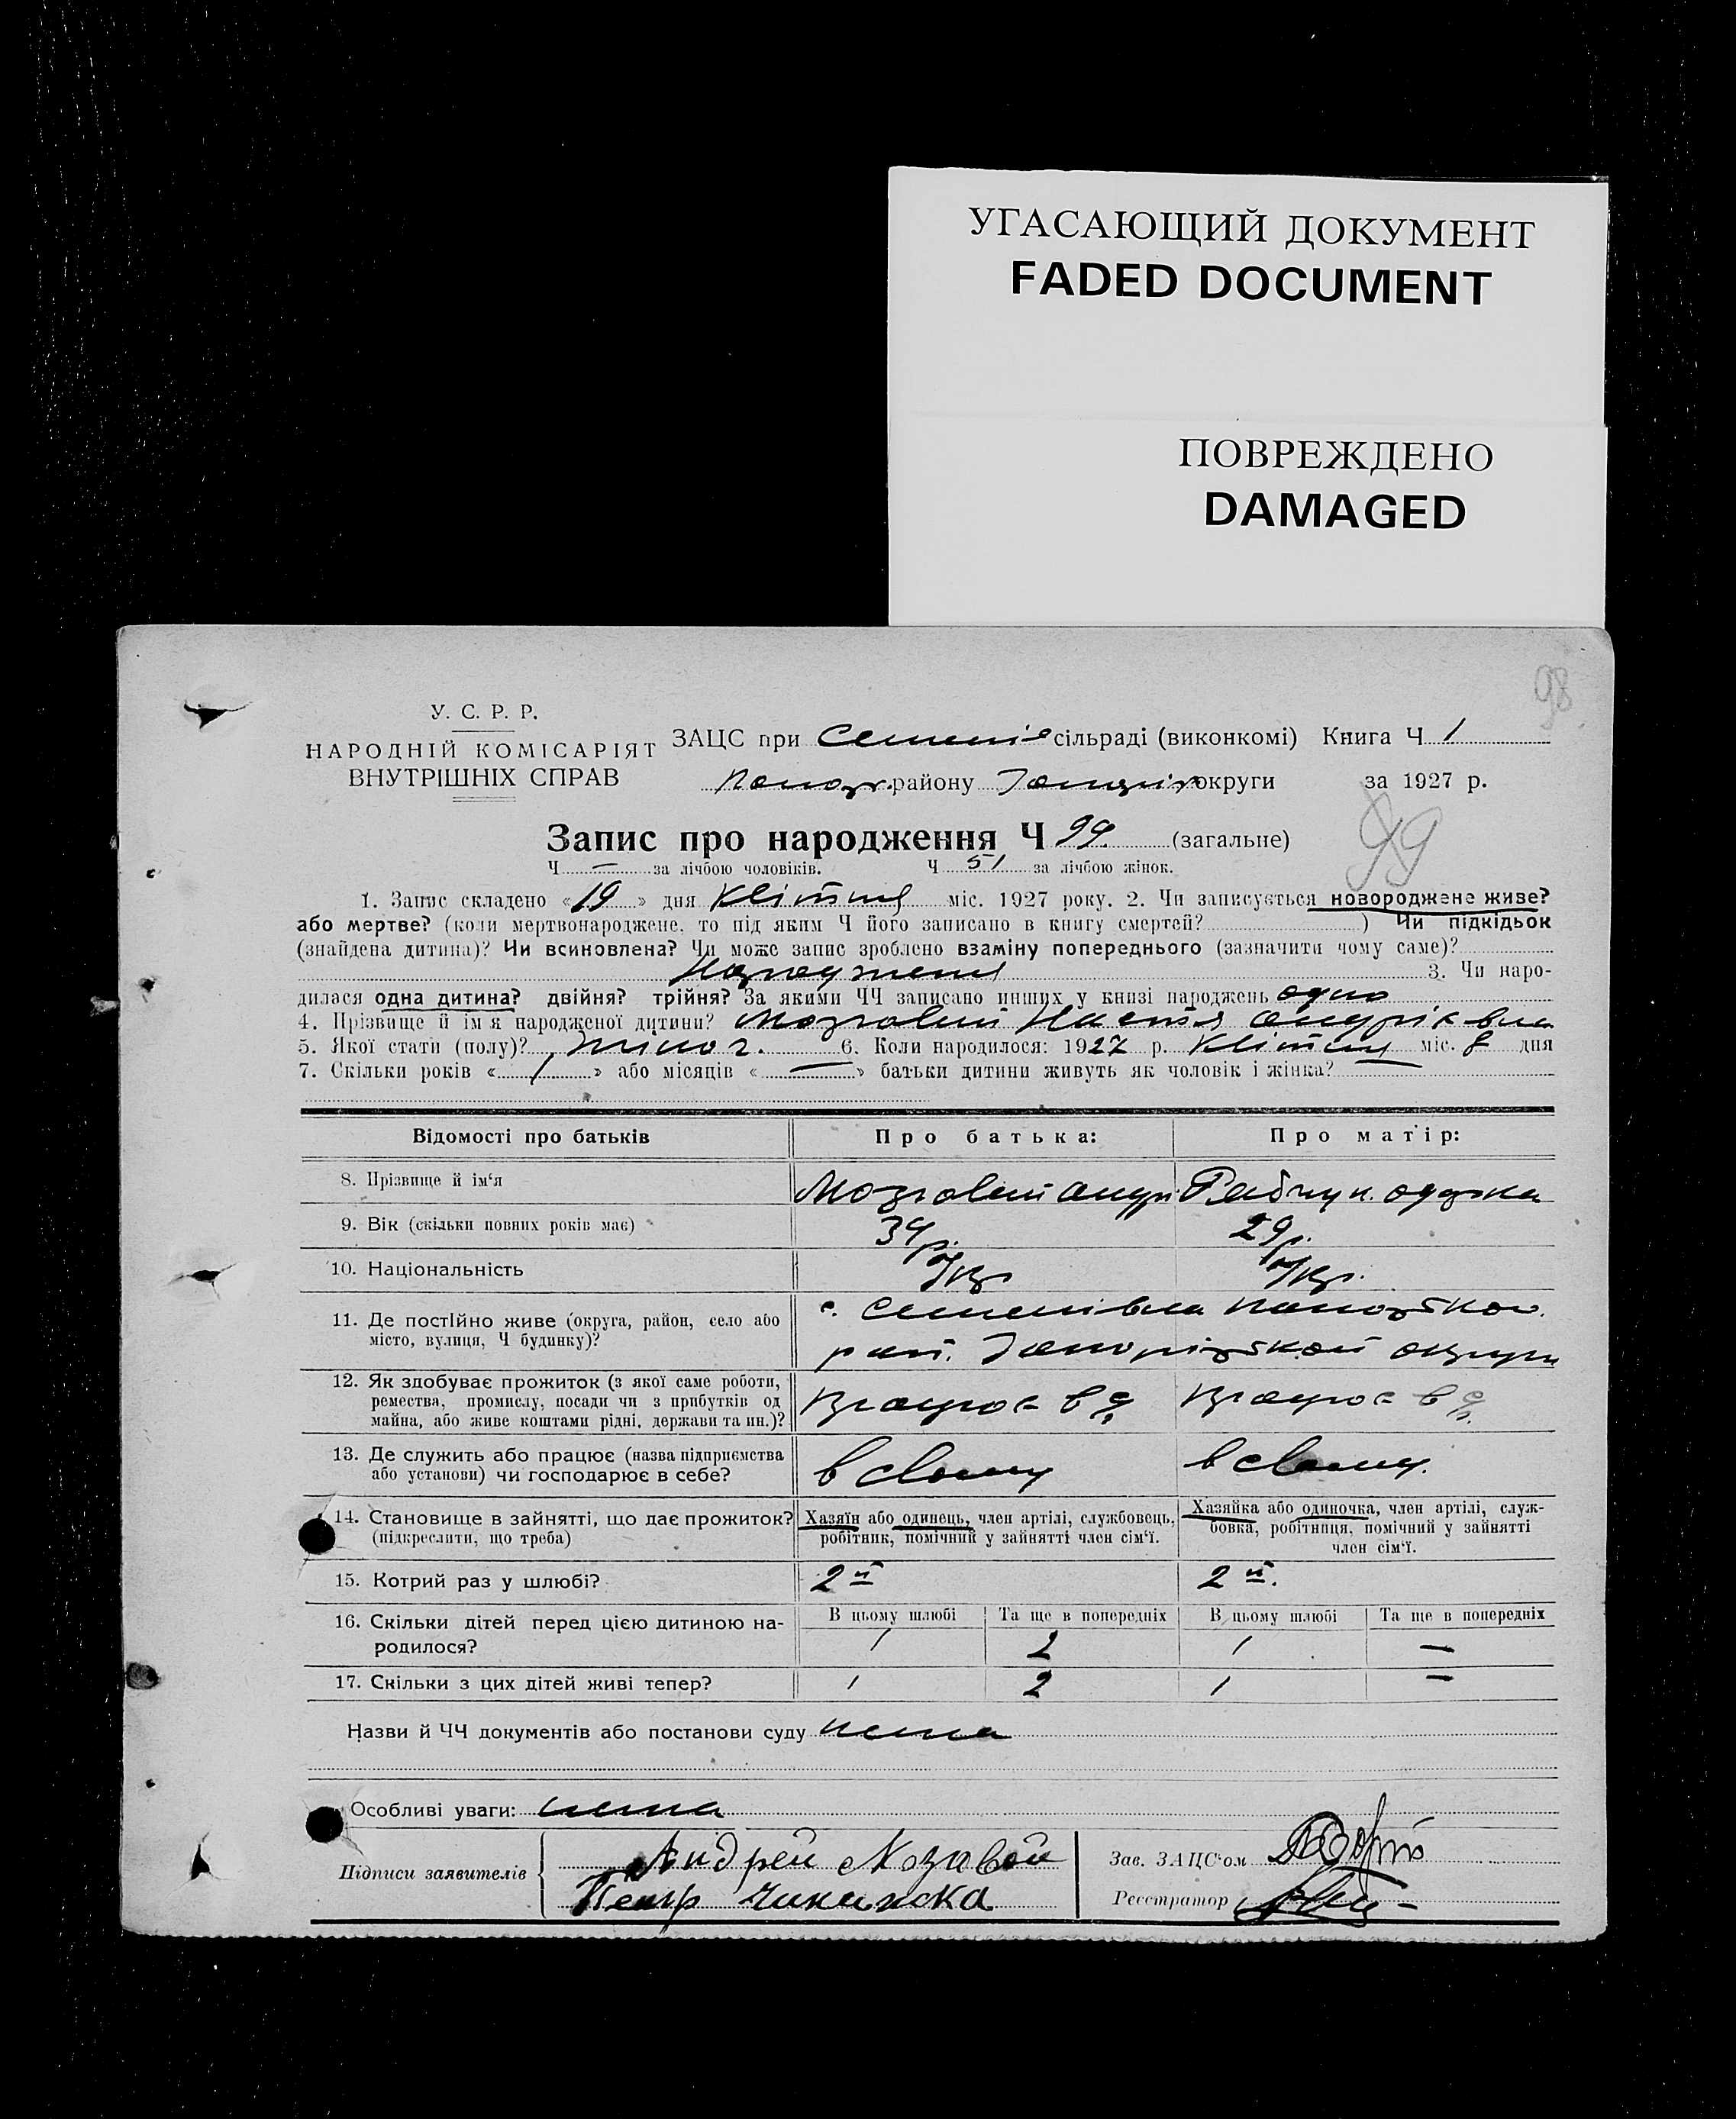 УГАСАЮЩИЙ ДОКУМЕНТ
FADED DOCUMENT
ПОВРЕЖДЕНО
DAMAGED
98
У. С. Р. Р.
НАРОДНІЙ КОМІСАРІЯТ
ВНУТРІШНІХ СПРАВ
ЗАЦС при сільраді (виконкомі) Книга Ч 1
району округи за 1927 р.
Запис про народження Ч 99. (загальне)
99
Ч — за лічбою чоловіків. Ч 51 за лічбою жінок.
1. Запис складено «19» дня Квітня міс. 1927 року. 2. Чи записується новороджене живе?
або мертве? (коли мертвонароджене, то під яким Ч його записано в книгу смертей? ) Чи підкідьок
(знайдена дитина)? Чи всиновлена? Чи може запис зроблено взаміну попереднього (зазначити чому саме)?
3. Чи наро-
дилася одна дитина? двійня? трійня? За якими ЧЧ записано инших у книзі народжень одно
4. Прізвище й ім'я народженої дитини? Мозговий Настя
5. Якої стати (полу)? жіноч. 6. Коли народилося: 1927 р. Квітня міс. 8 дня
7. Скільки років « 1 » або місяців « — » батьки дитини живуть як чоловік і жінка?
Відомості про батьків
Про батька:
Про матір:
8. Прізвище й ім'я
Мозговий Андрі
9. Вік (скільки повних років має)
34 р.
29 р.
10. Національність
Укр
Укр.
11. Де постійно живе (округа, район, село або
місто, вулиця, Ч будинку)?
с. Семенівка
рай. Запорізької округи
12. Як здобуває прожиток (з якої саме роботи,
ремества, промислу, посади чи з прибутків од
майна, або живе коштами рідні, держави та ин.)?
13. Де служить або працює (назва підприємства
або установи) чи господарює в себе?
в свому
в свому.
14. Становище в зайнятті, що дає прожиток?
(підкреслити, що треба)
Хазяїн або одинець, член артілі, службовець,
робітник, помічний у зайнятті член сім'ї.
Хазяйка або одиночка, член артілі, служ-
бовка, робітниця, помічний у зайнятті
член сім'ї.
15. Котрий раз у шлюбі?
2й
2й.
16. Скільки дітей перед цією дитиною на-
родилося?
В цьому шлюбі Та ще в попередніх В цьому шлюбі Та ще в попередніх
1 2 1 —
17. Скільки з цих дітей живі тепер?
1 2 1 —
Назви й ЧЧ документів або постанови суду нема
Особливі уваги: нема
Підписи заявителів
Андрей Мозавой
Петр
Зав. ЗАЦС'ом
Реєстратор